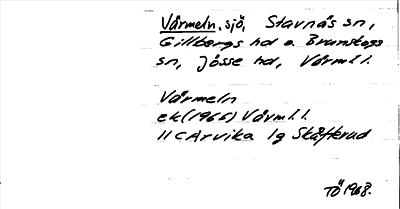 Värmeln, sjö, Stavnäs sn,
Gillbergs hd o. Brunskogs
sn, Jösse hd, Värml l.
Värmeln
ek (1966) Värml l.
11 C Arvika lg Skåftrud
TÖ 1968.